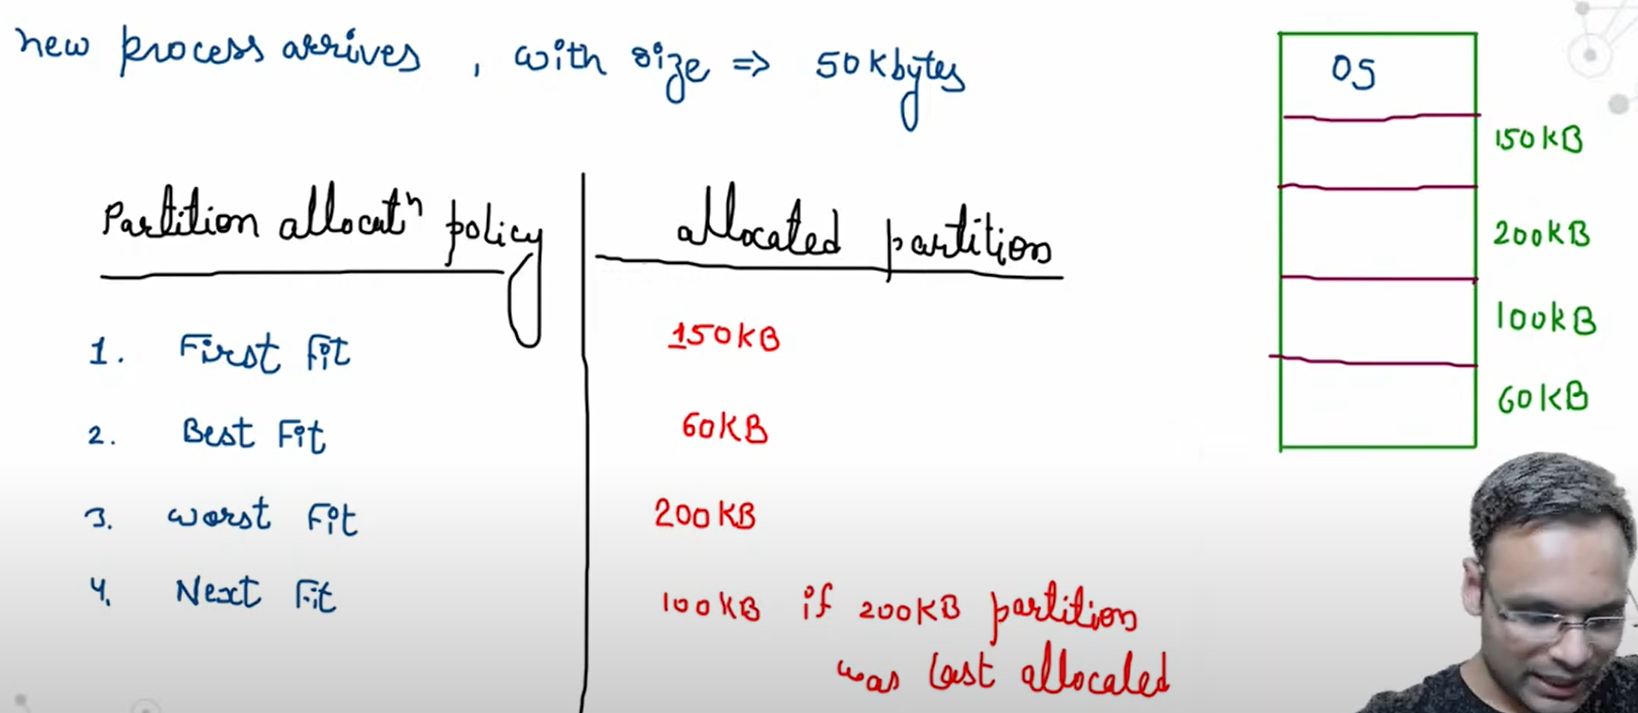 new process arrives , with size => 50 kbytes
Partition allocatⁿ policy
allocated partition
1. First Fit
150KB
2. Best Fit
60KB
3. worst Fit
200KB
4. Next Fit
100KB if 200KB partition
was last allocated
OS
150KB
200KB
100KB
60KB